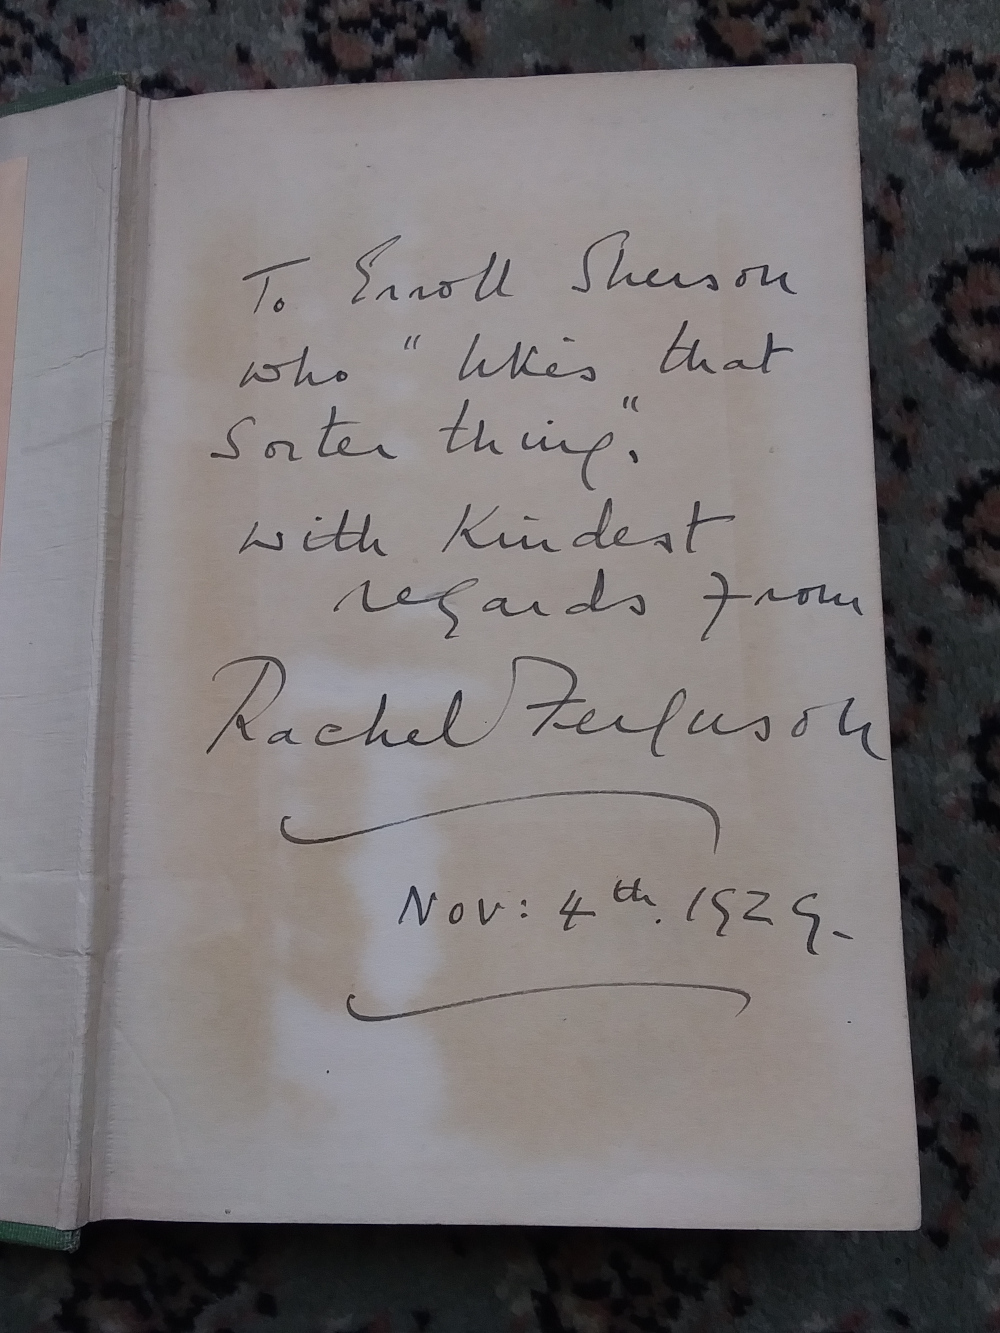 To Erroll Sherson
who " likes that
Sorter thing."
with Kindest
regards from
Rachel Ferguson
Nov: 4th. 1929.